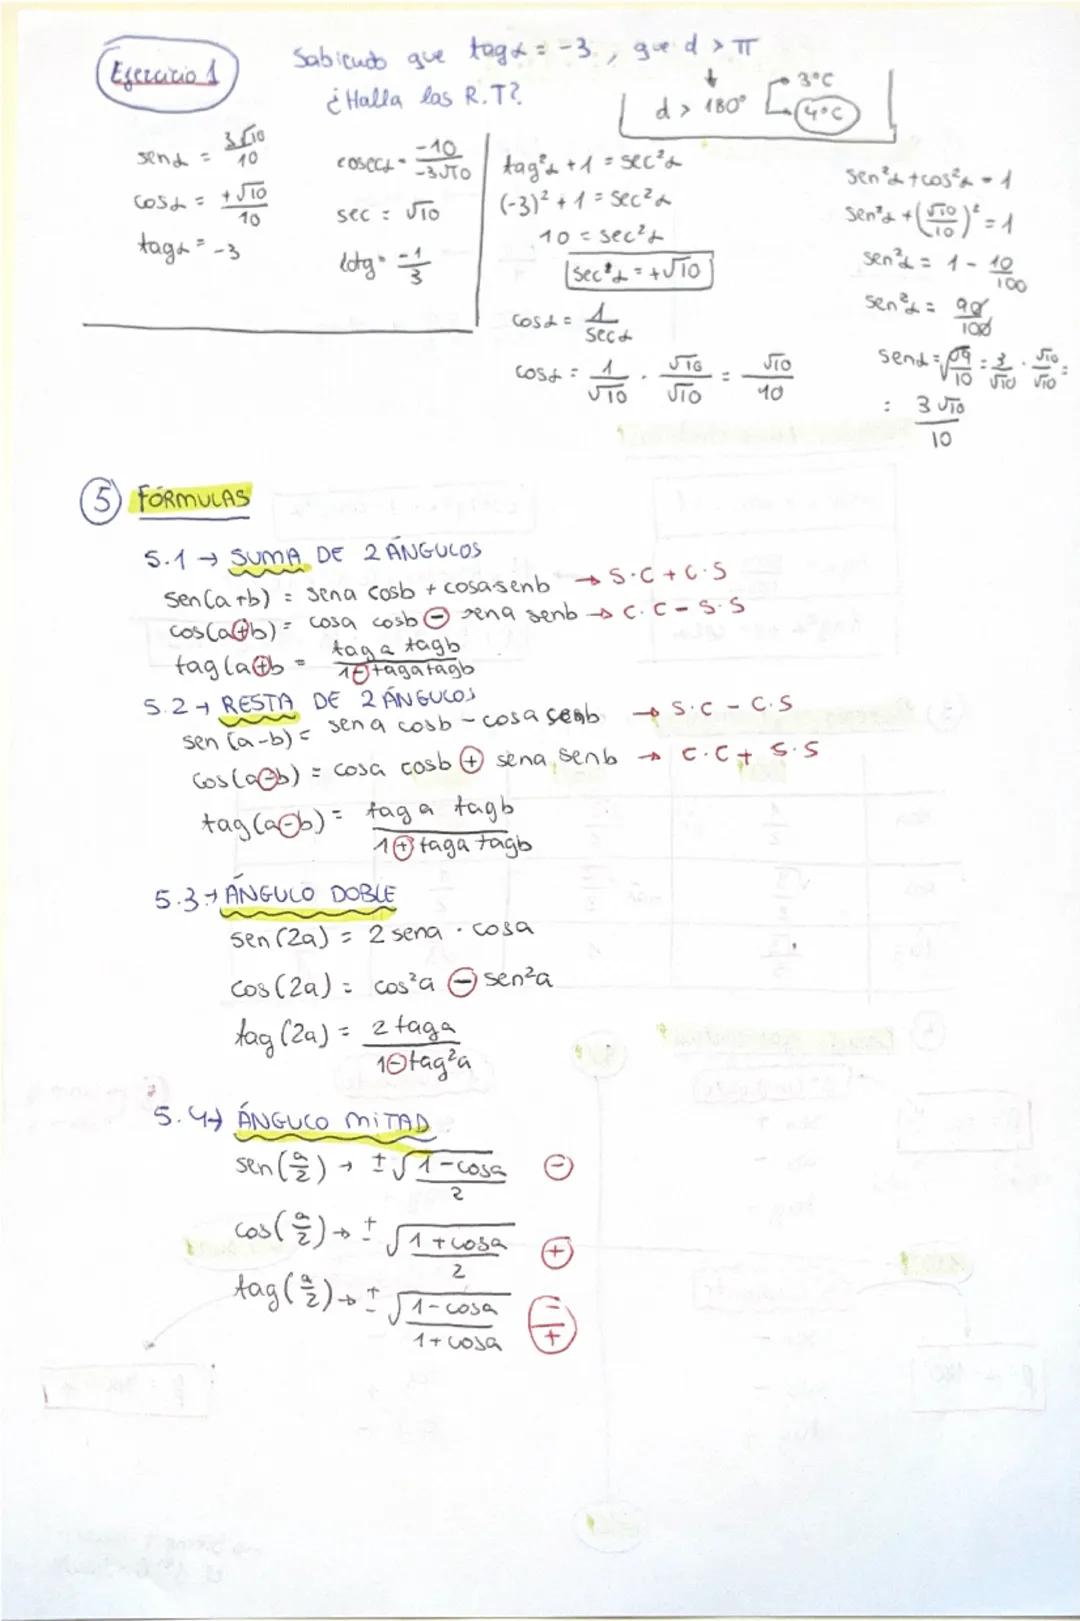 Ejercicio 1
Sabiendo que tagα = -3, que α > π
¿Halla las R.T?
α > 180°
3ºC
4ºC
senα = 3√10/10
cosα = +√10/10
tagα = -3
cosecα = -10/-3√10
sec = √10
cotg = -1/3
tag²α + 1 = sec²α
(-3)² + 1 = sec²α
10 = sec²α
sec²α = +√10
cosα = 1/secα
cosα = 1/√10 · √10/√10 = √10/10
sen²α + cos²α = 1
sen²α + (√10/10)² = 1
sen²α = 1 - 10/100
sen²α = 90/100
senα = √9/10 = 3/√10 · √10/√10 =
= 3√10/10
5 FÓRMULAS
5.1 → SUMA DE 2 ÁNGULOS
sen(a+b) = sena cosb + cosa·senb → S·C + C·S
cos(a+b) = cosa cosb - sena senb → C·C - S·S
tag(a+b = taga tagb / 1-tagatagb
5.2 → RESTA DE 2 ÁNGULOS
sen(a-b) = sena cosb - cosa senb → S·C - C·S
cos(a-b) = cosa cosb + sena senb → C·C + S·S
tag(a-b) = taga tagb / 1+taga tagb
5.3 → ÁNGULO DOBLE
sen(2a) = 2 sena · cosa
cos(2a) = cos²a - sen²a
tag(2a) = 2 taga / 1-tag²a
5.4 → ÁNGULO MITAD
sen(a/2) → ±√1-cosa/2 -
cos(a/2) → ±√1+cosa/2 +
tag(a/2) → ±√1-cosa/1+cosa -/+